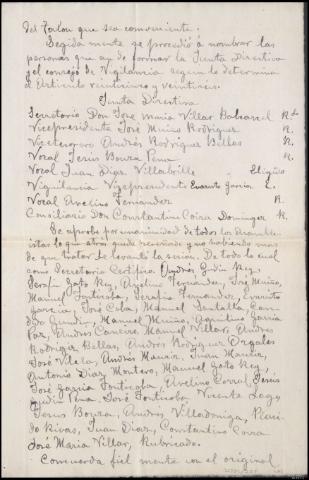 del Talon que sea conveniente.
Segida mente se procedió á nombrar las
personas que ay de formar la Junta Directiva
y el consejo de Vigilancia segun lo determina
el Articulo veintiuno y veintitres.
Junta Directiva
Secretario Don José Maria Villar Balsarrel R.do
Vicepresidente José Muiño Rodriguez R.
Vicetesorero Andrés Rodriguez Bellas R.
Voral Jesus Bouza Pena R.
Vocal Juan Diaz Villabrille Eligiós
Vigilancia Vicepresident. Evaristo Garcia E.
Voral Avelino Fernandez R.
Consiliario Don Constantino Coira Dominguez R.
Se aprobo por unanimidad de todos los
lo que atras quede reseñado y no habiendo mas
de que tratar se levantó la sesion. De todo lo cual
como Secretario Certifico. Andrés Gudin Rey,
Serafin Gato Rey, Avelino Fernandez, José Muiño,
Manuel Fonticoba, Serafin Fernandez, Evaristo
Garcia, José Coba, Manuel Santalla,
Manuel Muiño, Agustin Garcia
Paz, Andres Carreira, Manuel Villar, Andres
Rodriguez Bellas, Andrés Rodriguez
José Vilela, Andrés Mauriz, Juan Mauriz,
Antonio Diaz Montero, Manuel Gato Rey,
José Garcia Fonticoba, Avelino Corral, Jesus
Gudin Pena, José Fonticoba, Vicente Lago
Jesus Bouza, Andrés Villadoniga,
Rivas, Juan Diaz, Constantino Coira
José Maria Villar, Rubricado.
Concuerda fiel mente con el original